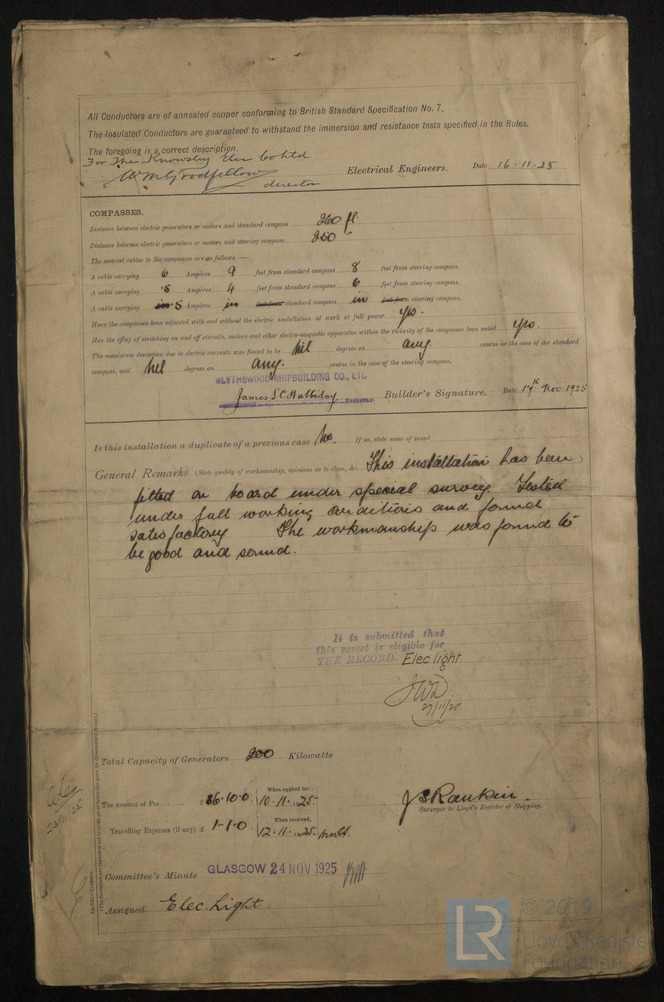 All Conductors are of annealed copper conforming to British Standard Specification No. 7.
The Insulated Conductors are guaranteed to withstand the immersion and resistance tests specified in the Rules.
The foregoing is a correct description.
For The Knowsley Elec Co Ltd
W M Goodfellow Electrical Engineers. Date 16.11.25
director
COMPASSES.
Distance between electric generators or motors and standard compass 260 ft
Distance between electric generators or motors and steering compass 250 "
The nearest cables to the compasses are as follows:—
A cable carrying 6 Ampères 9 feet from standard compass 8 feet from steering compass.
A cable carrying .5 Ampères 4 feet from standard compass 6 feet from steering compass.
A cable carrying .5 Ampères in feet from standard compass in feet from steering compass.
Have the compasses been adjusted with and without the electric installation at work at full power yes.
Has the effect of switching on and off circuits, motors and other electro-magnetic apparatus within the vicinity of the compasses been noted yes.
The maximum deviation due to electric currents was found to be Nil degrees on any course in the case of the standard
compass, and Nil degrees on any. course in the case of the steering compass.
BLYTHSWOOD SHIPBUILDING CO., LTD
James S C Halliday Builder's Signature. Date 17th Nov. 1925
Is this installation a duplicate of a previous case No. If so, state name of vessel
General Remarks (State quality of workmanship, opinions as to class, &c. This installation has been
fitted on board under special survey. Tested
under full working conditions and found
satisfactory The workmanship was found to
be good and sound.
It is submitted that
this vessel is eligible for
THE RECORD. Elec light.
JWD
27/11/25
Total Capacity of Generators 200 Kilowatts
The amount of Fee ... £36.10.0 When applied for, 10.11.1925
J S Rankin.
Surveyor to Lloyd's Register of Shipping.
Travelling Expenses (if any) £ 1-1-0 When received, 12.11.1925
Committee's Minute GLASGOW 24 NOV 1925
Assigned Elec Light.
LR
© 2019
Lloyd's Register
Foundation